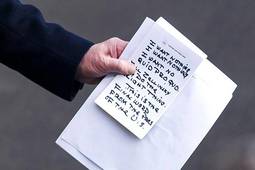 I WANT NOTHING.
I WANT NOTHING.
I WANT NO
QUID PRO QUO.
ZELLINSKY
DO THE
RIGHT THING.
THIS IS THE
FINAL WORD
FROM THE PRES
OF THE U.S.